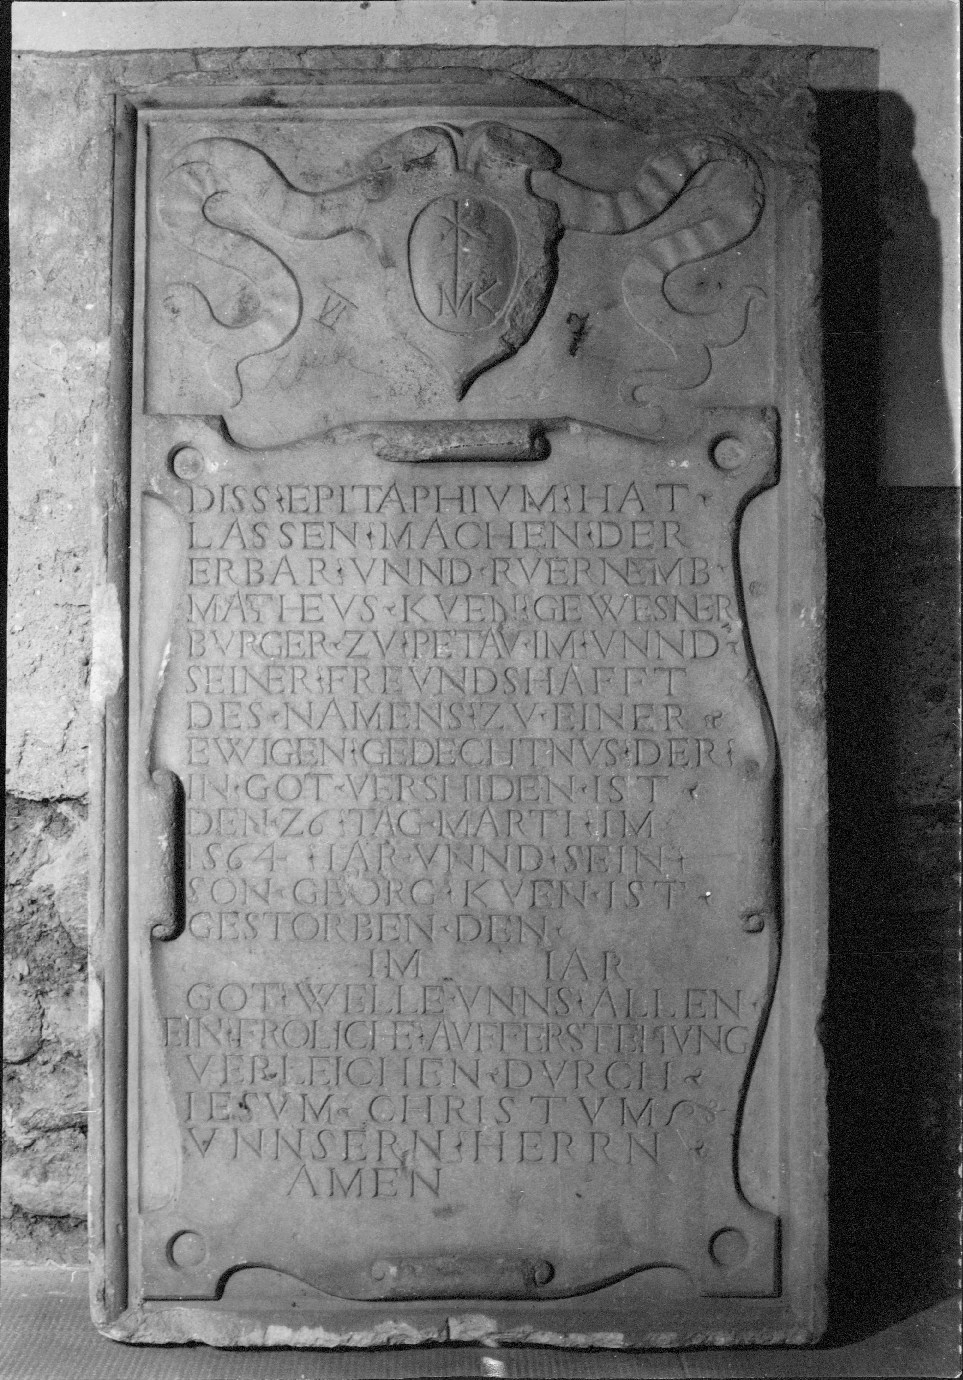 MK
DISS·EPITAPHIVM·HAT·
LASSEN·MACHEN·DER
ERBAR·VND·RVERNEMB·
MATHEVS·KVEN·GEWESNER
BVRGER·ZV·PETAV·IM·VND·
SEINER·FREVNDSHAFFT
DES·NAMENS·ZV·EINER·
EWIGEN·GEDECHTNVS·DER·
IN·GOT·VERSHIDEN·IST·
DEN·26·TAG·MARTI·IM
564·IAR·VNND·SEIN·
SON·GEORG·KVEN·IST·
GESTORBEN·DEN·
IM IAR
GOT·WELLE·VNNS·ALLEN
EIN·FROLICHE·AVFERSTEHVNG
VERLEICHEN·DVRCH·
IESVM·CHRISTVM
VNNSERN·HERRN·
AMEN